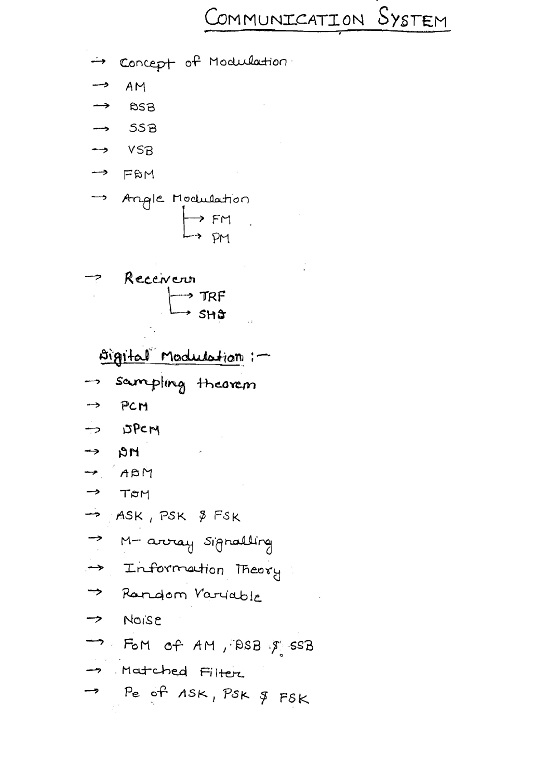 COMMUNICATION SYSTEM
→ Concept of Modulation
→ AM
→ DSB
→ SSB
→ VSB
→ FDM
→ Angle Modulation
→ FM
→ PM
→ Receivers
→ TRF
→ SHD
Digital Modulation :-
→ Sampling theorem
→ PCM
→ DPCM
→ DM
→ ADM
→ TDM
→ ASK, PSK & FSK
→ M-array Signalling
→ Information Theory
→ Random Variable
→ Noise
→ FoM of AM, DSB & SSB
→ Matched Filter
→ Pe of ASK, PSK & FSK